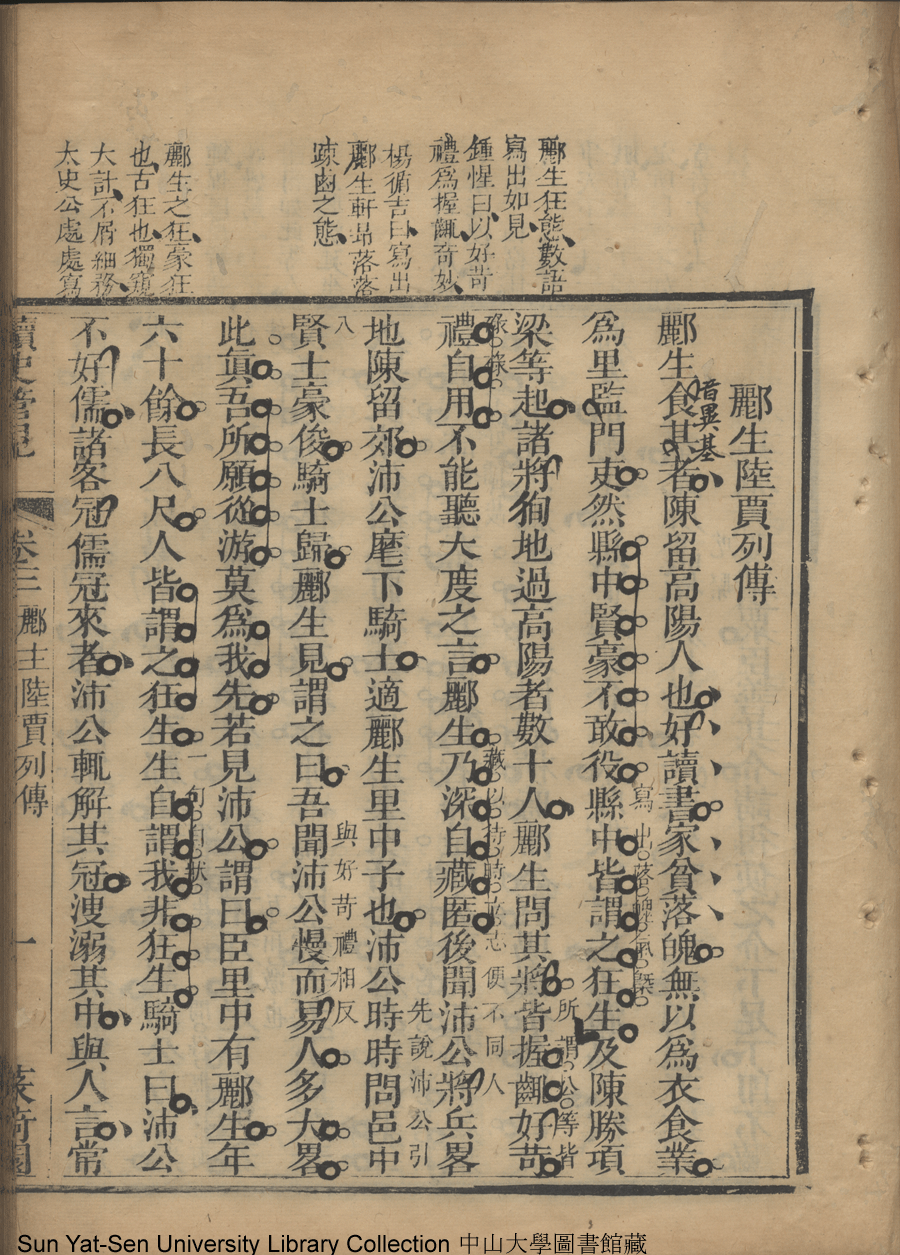 酈生狂態數語
寫出如見
鍾惺曰以好苛
禮為握齱奇妙
楊循吉曰寫出
酈生軒昻落落
踈鹵之態
酈生之狂豪狂
也古狂也獨窺
大計不屑細務
太史公處處寫
酈生陸賈列傳
酈生食其者陳留高陽人也好讀書家貧落魄無以為衣食業
音異基
為里監門吏然縣中賢豪不敢役縣中皆謂之狂生及陳勝項
寫出落魄氣槩
梁等起諸將徇地過高陽者數十人酈生問其將皆握齱好苛
所謂公等皆
碌碌
禮自用不能聽大度之言酈生乃深自藏匿後聞沛公將兵畧
藏以待時
志便不同人
地陳留郊沛公麾下騎士適酈生里中子也沛公時時問邑中
先說沛公引
入
賢士豪俊騎士歸酈生見謂之曰吾聞沛公慢而易人多大畧
與好苛禮相反
此眞吾所願從游莫為我先若見沛公謂曰臣里中有酈生年
六十餘長八尺人皆謂之狂生生自謂我非狂生騎士曰沛公
一句自狀
不好儒諸客冠儒冠來者沛公輒解其冠溲溺其中與人言常
讀史管見
卷三
酈生陸賈列傳
一